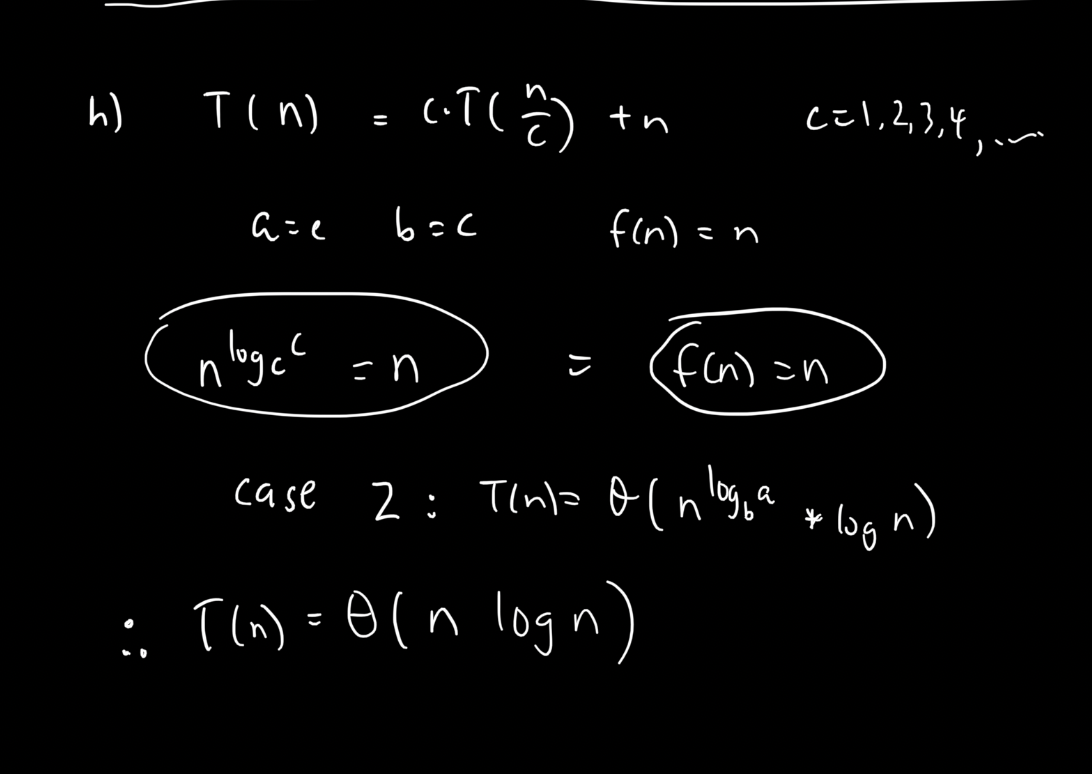 h) T(n) = c·T(n/c) + n c=1,2,3,4,...
a=c b=c f(n) = n
n^log_c c = n = f(n) = n
case 2: T(n)= θ(n^log_b a * log n)
∴ T(n) = θ(n log n)